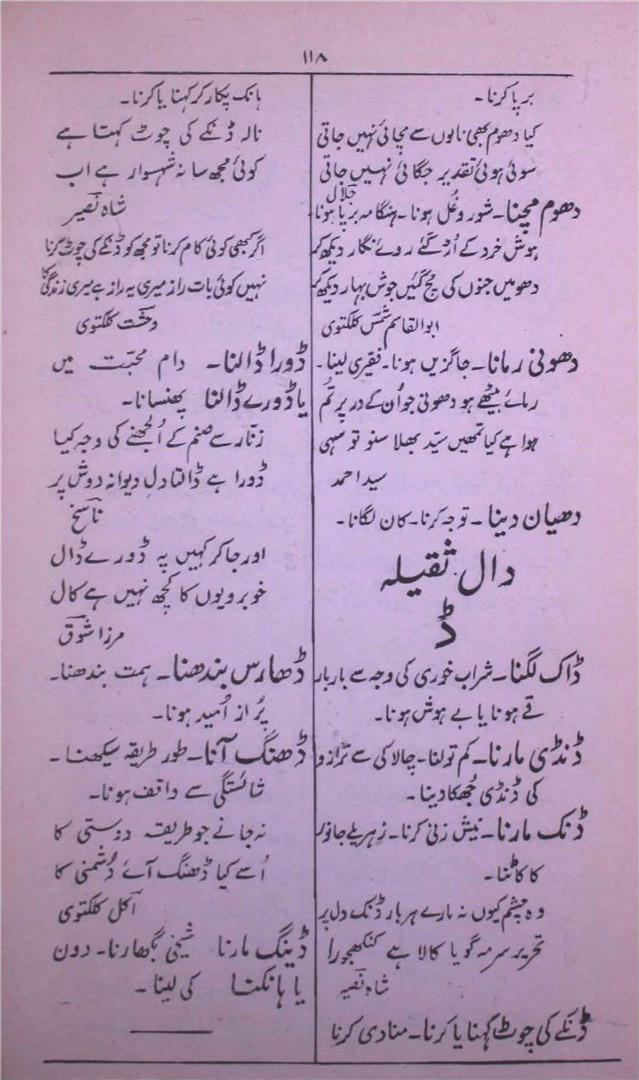 ۱۱۸
برپا کرنا۔
کیا دھوم بھی نالوں سے مچائی نہیں جاتی
سوئی ہوئی تقدیر جگائی نہیں جاتی
جلال
دھوم مچنا۔ شور و غل ہونا۔ ہنگامہ برپا ہونا۔
ہوش خرد کے اُڑ گئے روئے نگار دیکھ کر
دھومیں جنوں کی مچ گئیں جوشِ بہار دیکھ کر
ابوالقاسم شمس کلکتوی
دھونی رمانا۔ جاگزیں ہونا۔ فقیری لینا۔
رمائے بیٹھے ہو دھونی جو اُن کے در پر تُم
ہوا ہے کیا تمھیں سیّد بھلا سنو تو سہی
سید احمد
دھیان دینا۔ توجہ کرنا۔ کان لگانا۔
دال ثقیلہ
ڈ
ڈاک لگنا۔ شراب خوری کی وجہ سے بار بار
قے ہونا یا بے ہوش ہونا۔
ڈنڈی مارنا۔ کم تولنا۔ چالاکی سے ترازو
کی ڈنڈی جُھکا دینا۔
ڈنک مارنا۔ نیش زنی کرنا۔ زہریلے جانور
کا کاٹنا۔
وہ چشم کیوں نہ مارے ہر بار ڈنک دل پر
تحریر سرمہ گویا کالا ہے کنکھجورا
شاہ نصیر
ڈنکے کی چوٹ کہنا یا کرنا۔ منادی کرنا
ہانک پکار کر کہنا یا کرنا۔
نالہ ڈنکے کی چوٹ کہتا ہے
کوئی مجھ سا نہ شہسوار ہے اب
شاہ نصیر
اگر کبھی کوئی کام کرنا تو مجھ کو ڈنکے کی چوٹ کرنا
نہیں کوئی بات راز میری یہ راز ہے میری زندگی کا
وحشت کلکتوی
ڈورا ڈالنا۔ دام محبّت میں
یا ڈورے ڈالنا پھنسانا۔
زنّار سے صنم کے اُلجھنے کی وجہ کیا
ڈورا ہے ڈالتا دلِ دیوانہ دوش پر
ناسخ
اور جا کر کہیں پہ ڈورے ڈال
خوبرویوں کا کچھ نہیں ہے کال
مرزا شوق
ڈھارس بندھنا۔ ہمت بندھنا۔
پُر از اُمید ہونا۔
ڈھنگ آنا۔ طور طریقہ سیکھنا۔
شائستگی سے واقف ہونا۔
نہ جانے جو طریقہ دوستی کا
اُسے کیا ڈھنگ آئے دُشمنی کا
اکمل کلکتوی
ڈینگ مارنا شیخی بگھارنا۔ دون
یا ہانکنا کی لینا۔